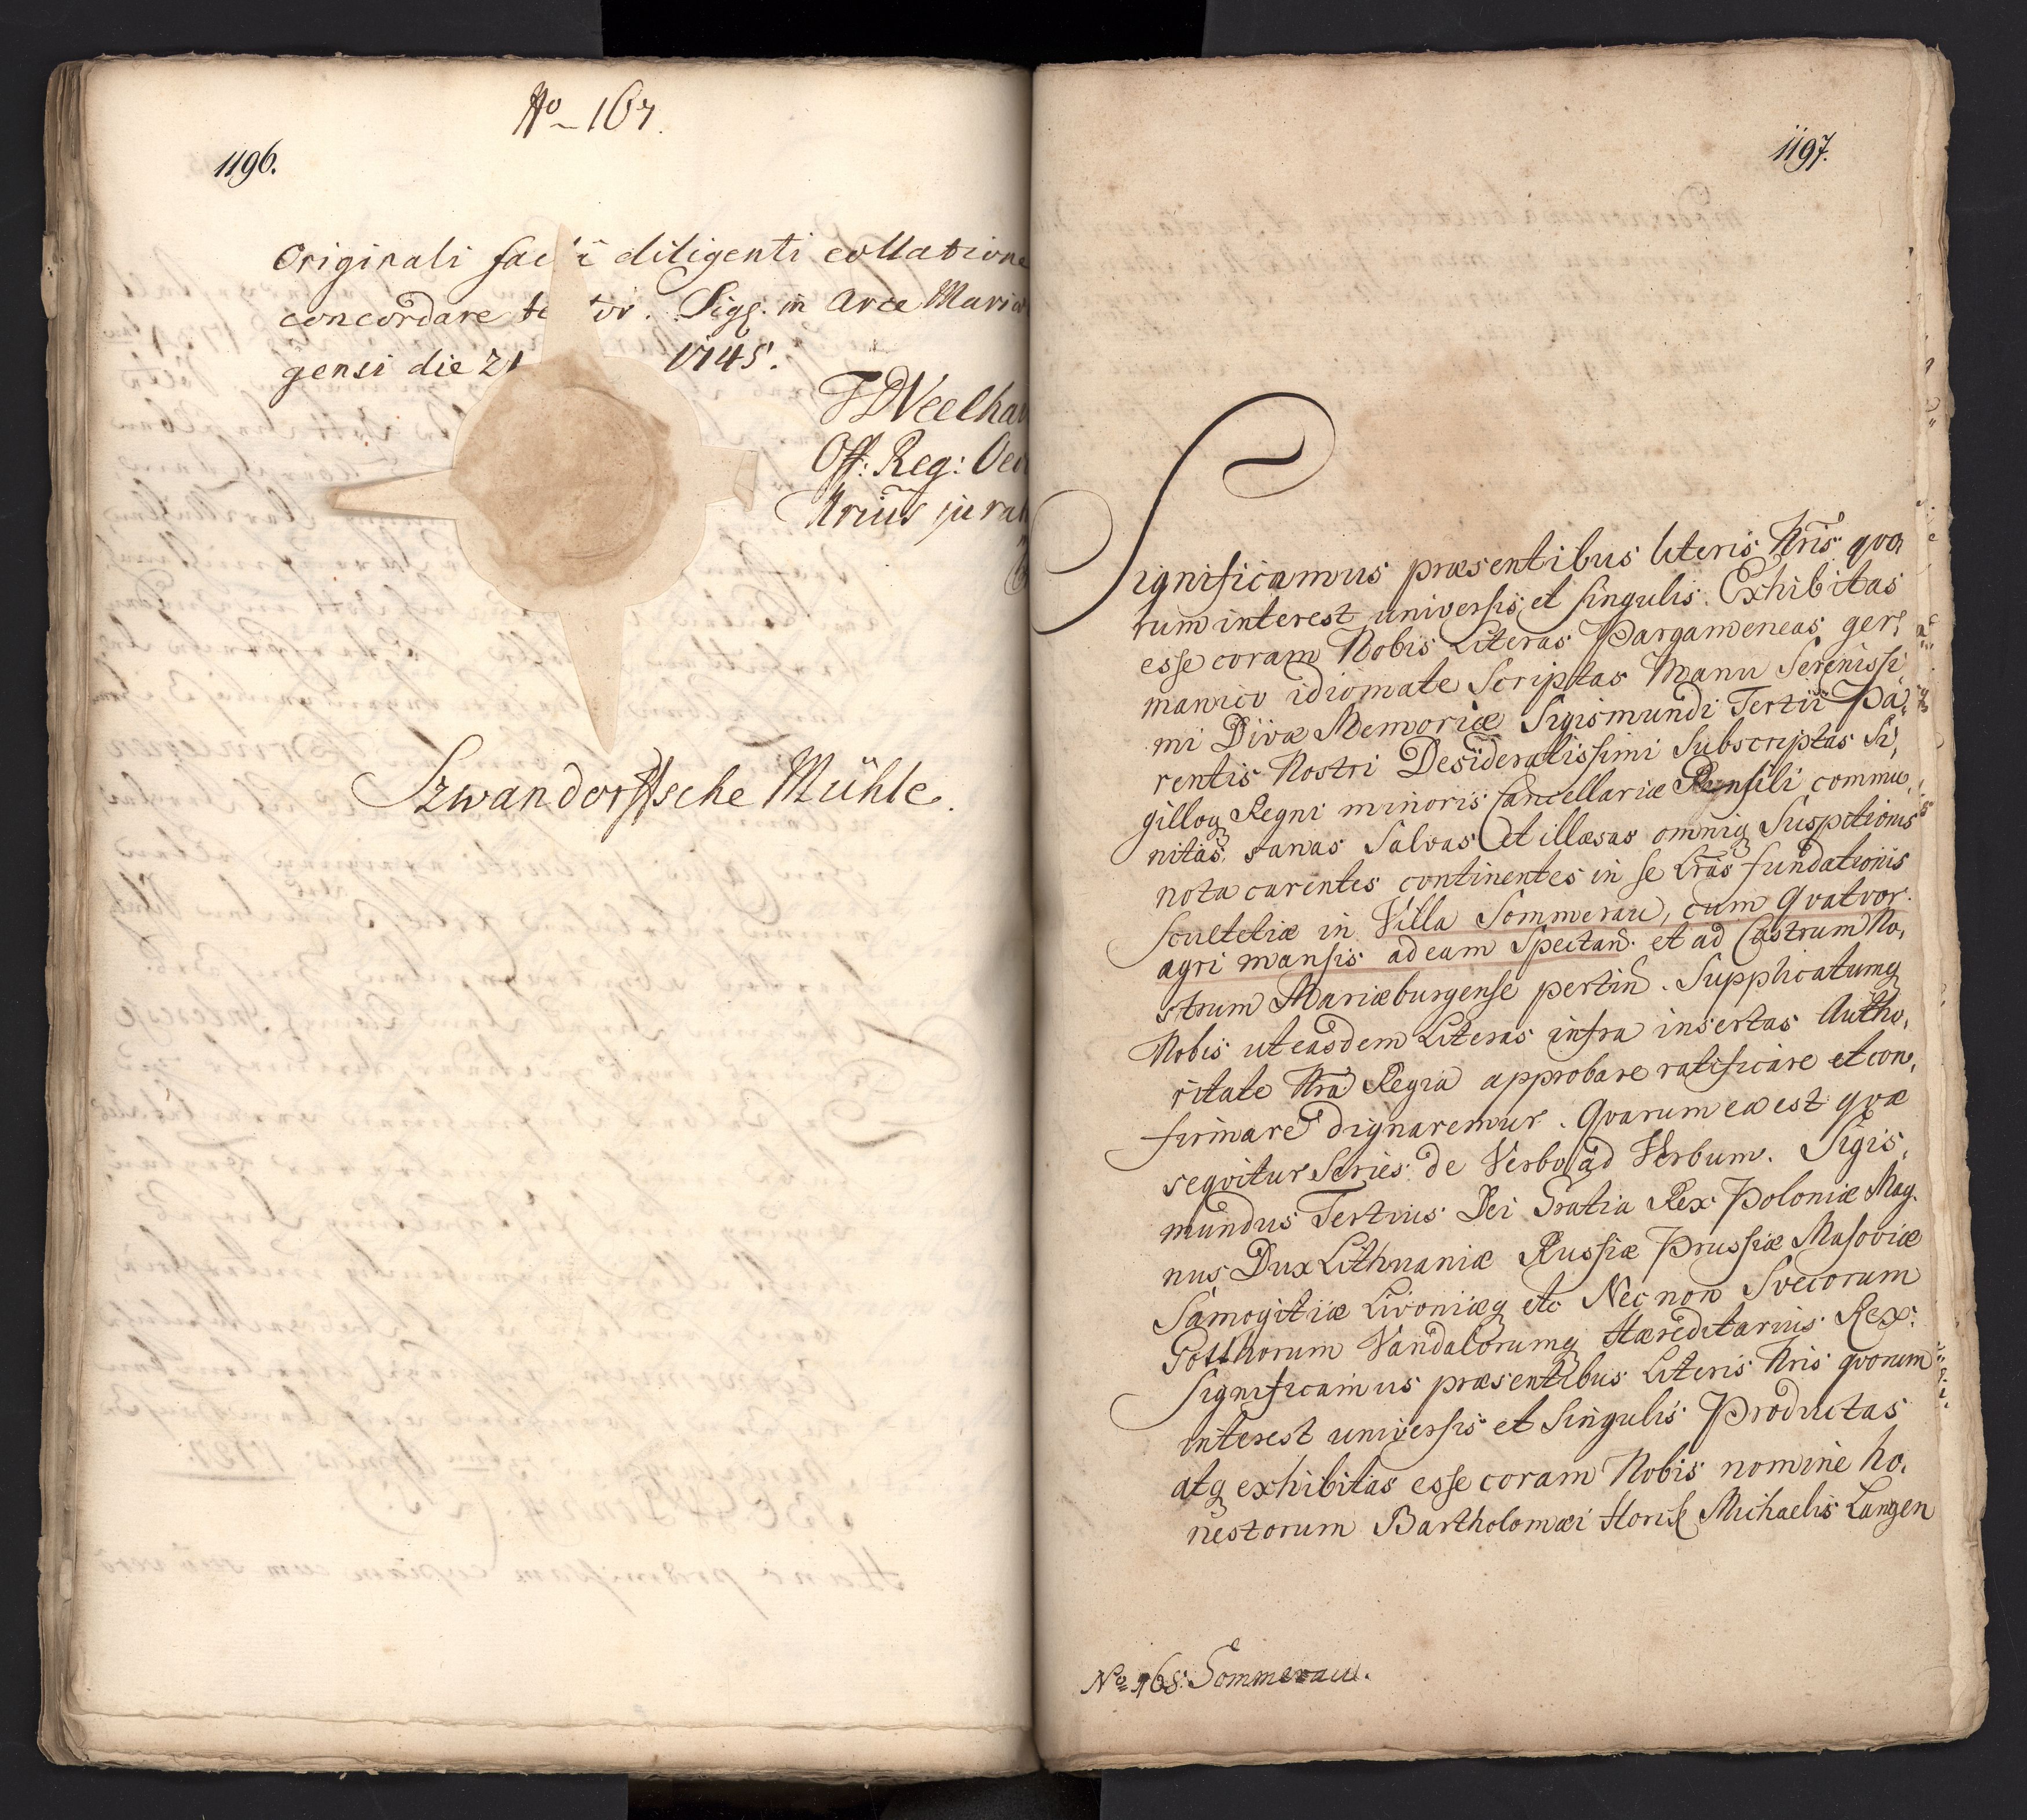 No 167.
1196.
Originali fac i diligenti collatione
concordare te tor. Sigg. in Arce Mariæ
gensi die 21 1745.
Off: Reg:
jurat
Szwandorffsche Mühle.
1197.
Significamus præsentibus literis Nris quo,
rum interest universis et singulis. Exhibitas
esse coram Nobis Literas Pargameneas ger,
manico idiomate Scriptas Manu Serenissi,
mi Divæ Memoriæ Sigismundi Tertii Pa,
rentis Nostri Desideratissimi Subscriptas Si,
gilloq Regni minoris Cancellariæ Pensili commu,
nitas, sanas Salvas et illæsas omniq Suspitionis
nota carentes continentes in se Lras fundationis
Scultetiæ in Villa Sommerau, cum Qvatvor
agri mansis ad eam Spectan. et ad Castrum No,
strum Mariæburgense pertin. Supplicatumq
Nobis ut easdem Literas infra insertas Autho,
ritate Nra Regia approbare ratificare et con,
firmare dignaremur. Qvarum ea est qvæ
seqvitur Series de Verbo ad Verbum. Sigis,
mundus Tertius Dei Gratia Rex Poloniæ Mag,
nus Dux Lithuaniæ Russiæ Prussiæ Masoviæ
Samogitiæ Livoniæq etc Nec non Svecorum
Gotthorum Vandalorumq Hæreditarius Rex.
Significamus præsentibus Literis Nris qvorum
interest universis et Singulis Productas
atq exhibitas esse coram Nobis nomine ho,
nestorum Bartholomæi Michaelis Langen
No 168. Sommerau.